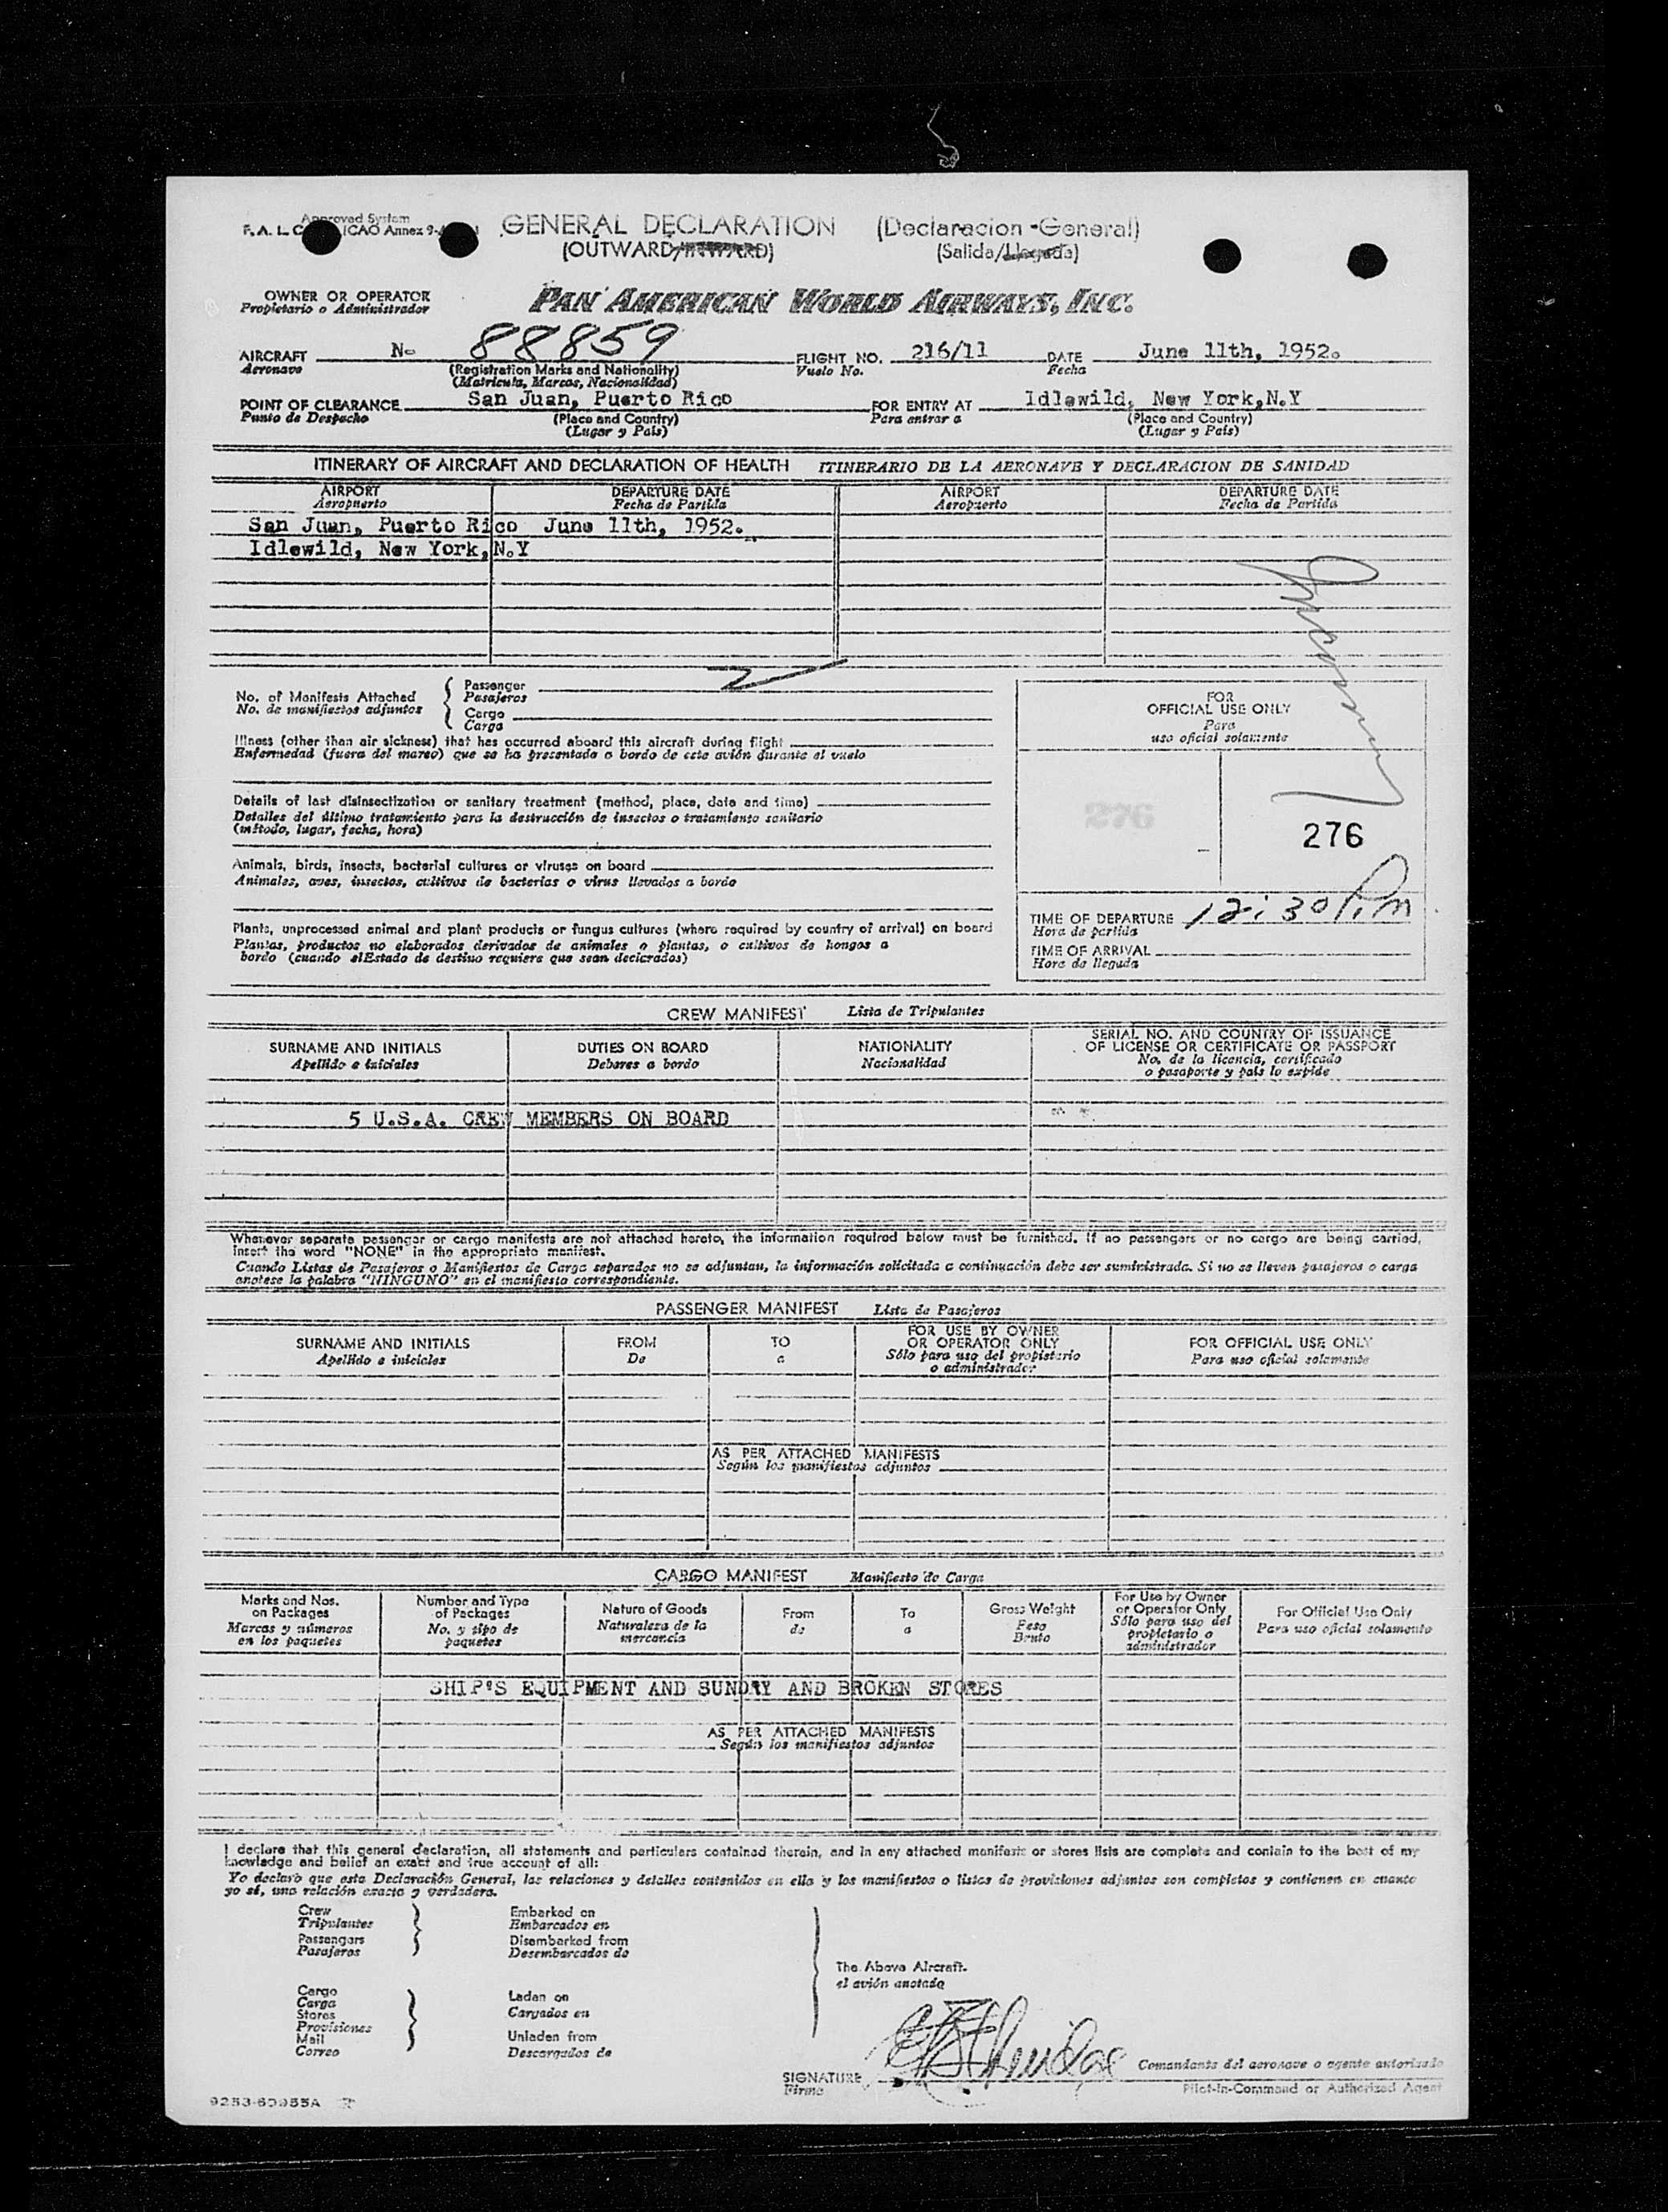 Approved System
F. A. L. C ICAO Annex 9-
GENERAL DECLARATION (Declaracion -General)
(OUTWARD/INWARD) (Salida/Llegada)
OWNER OR OPERATOR
Propietario o Administrador
PAN AMERICAN WORLD AIRWAYS, INC.
AIRCRAFT N- 88859 FLIGHT NO. 216/11 DATE June 11th, 1952.
Aeronave (Registration Marks and Nationality) Vuelo No. Fecha
(Matricula, Marcas, Nacionalidad)
POINT OF CLEARANCE San Juan, Puerto Rico FOR ENTRY AT Idlewild, New York,N.Y
Punto de Despacho (Place and Country) Para entrar a (Place and Country)
(Lugar y País) (Lugar y País)
ITINERARY OF AIRCRAFT AND DECLARATION OF HEALTH ITINERARIO DE LA AERONAVE Y DECLARACION DE SANIDAD
AIRPORT DEPARTURE DATE AIRPORT DEPARTURE DATE
Aeropuerto Fecha de Partida Aeropuerto Fecha de Partida
San Juan, Puerto Rico June 11th, 1952.
Idlewild, New York,N.Y
No. of Manifests Attached
No. de manifiestos adjuntos
Passenger
Pasajeros
Cargo
Carga
Illness (other than air sickness) that has occurred aboard this aircraft during flight
Enfermedad (fuera del mareo) que se ha presentado a bordo de este avión durante el vuelo
Details of last disinsectization or sanitary treatment (method, place, date and time)
Detalles del último tratamiento para la destrucción de insectos o tratamiento sanitario
(método, lugar, fecha, hora)
Animals, birds, insects, bacterial cultures or viruses on board
Animales, aves, insectos, cultivos de bacterias o virus llevados a bordo
Plants, unprocessed animal and plant products or fungus cultures (where required by country of arrival) on board
Plantas, productos no elaborados derivados de animales o plantas, o cultivos de hongos a
bordo (cuando elEstado de destino requiere que sean declarados)
FOR
OFFICIAL USE ONLY
Para
uso oficial solamente
276 276
TIME OF DEPARTURE 12:30 P.m
Hora de partida
TIME OF ARRIVAL
Hora de llegada
CREW MANIFEST Lista de Tripulantes
SURNAME AND INITIALS DUTIES ON BOARD NATIONALITY SERIAL NO. AND COUNTRY OF ISSUANCE
Apellido e iniciales Deberes a bordo Nacionalidad OF LICENSE OR CERTIFICATE OR PASSPORT
No. de la licencia, certificado
o pasaporte y país lo expide
5 U.S.A. CREW MEMBERS ON BOARD
Whenever separate passenger or cargo manifests are not attached hereto, the information required below must be furnished. If no passengers or no cargo are being carried,
insert the word "NONE" in the appropriate manifest.
Cuando Listas de Pasajeros o Manifiestos de Carga separados no se adjuntan, la información solicitada a continuación debe ser suministrada. Si no se lleven pasajeros o carga
anotese la palabra "NINGUNO" en el manifiesto correspondiente.
PASSENGER MANIFEST Lista de Pasajeros
SURNAME AND INITIALS FROM TO FOR USE BY OWNER FOR OFFICIAL USE ONLY
Apellido e iniciales De a OR OPERATOR ONLY Para uso oficial solamente
Sólo para uso del propietario
o administrador
AS PER ATTACHED MANIFESTS
Según los manifiestos adjuntos
CARGO MANIFEST Manifiesto de Carga
Marks and Nos. Number and Type Nature of Goods From To Gross Weight For Use by Owner For Official Use Only
on Packages of Packages Naturaleza de la de a Peso or Operator Only Para uso oficial solamente
Marcas y números No. y tipo de mercancía Bruto Sólo para uso del
en los paquetes paquetes propietario o
administrador
SHIP'S EQUIPMENT AND SUNDRY AND BROKEN STORES
AS PER ATTACHED MANIFESTS
Según los manifiestos adjuntos
I declare that this general declaration, all statements and particulars contained therein, and in any attached manifests or stores lists are complete and contain to the best of my
knowledge and belief an exact and true account of all:
Yo declaro que esta Declaración General, las relaciones y detalles contenidos en ella y los manifiestos o listas de provisiones adjuntos son completos y contienen en cuanto
yo sé, una relación exacta y verdadera.
Crew Embarked on
Tripulantes Embarcados en
Passengers Disembarked from
Pasajeros Desembarcados de
The Above Aircraft.
el avión anotado
Cargo Laden on
Carga Cargados en
Stores
Provisiones
Mail Unladen from
Correo Descargados de
SIGNATURE
Firma
Comandante del aeronave o agente autorizado
Pilot-In-Command or Authorized Agent
9253-60955A